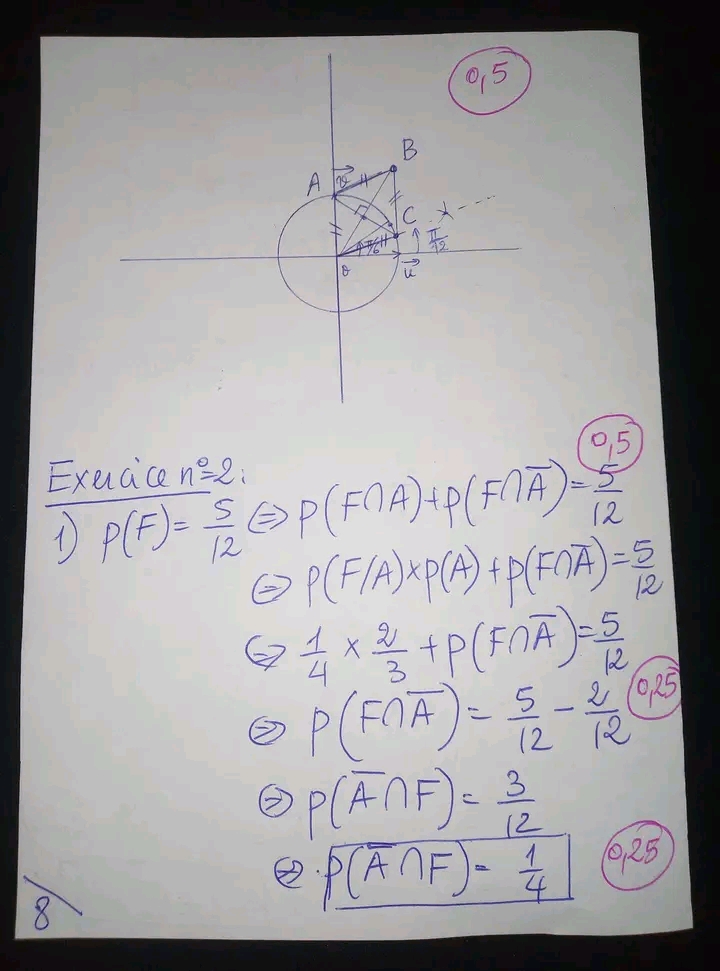 0,5
B
A
v
C
π/6
π/12
O
u
0,5
Exercice n°=2:
1) p(F) = 5/12 ⇔ p(F∩A)+p(F∩A̅) = 5/12
⇔ p(F/A)×p(A)+p(F∩A̅) = 5/12
⇔ 1/4 × 2/3 + p(F∩A̅) = 5/12
⇔ p(F∩A̅) = 5/12 - 2/12 0,25
⇔ p(A̅∩F) = 3/12
⇔ p(A̅∩F) = 1/4 0,25
8